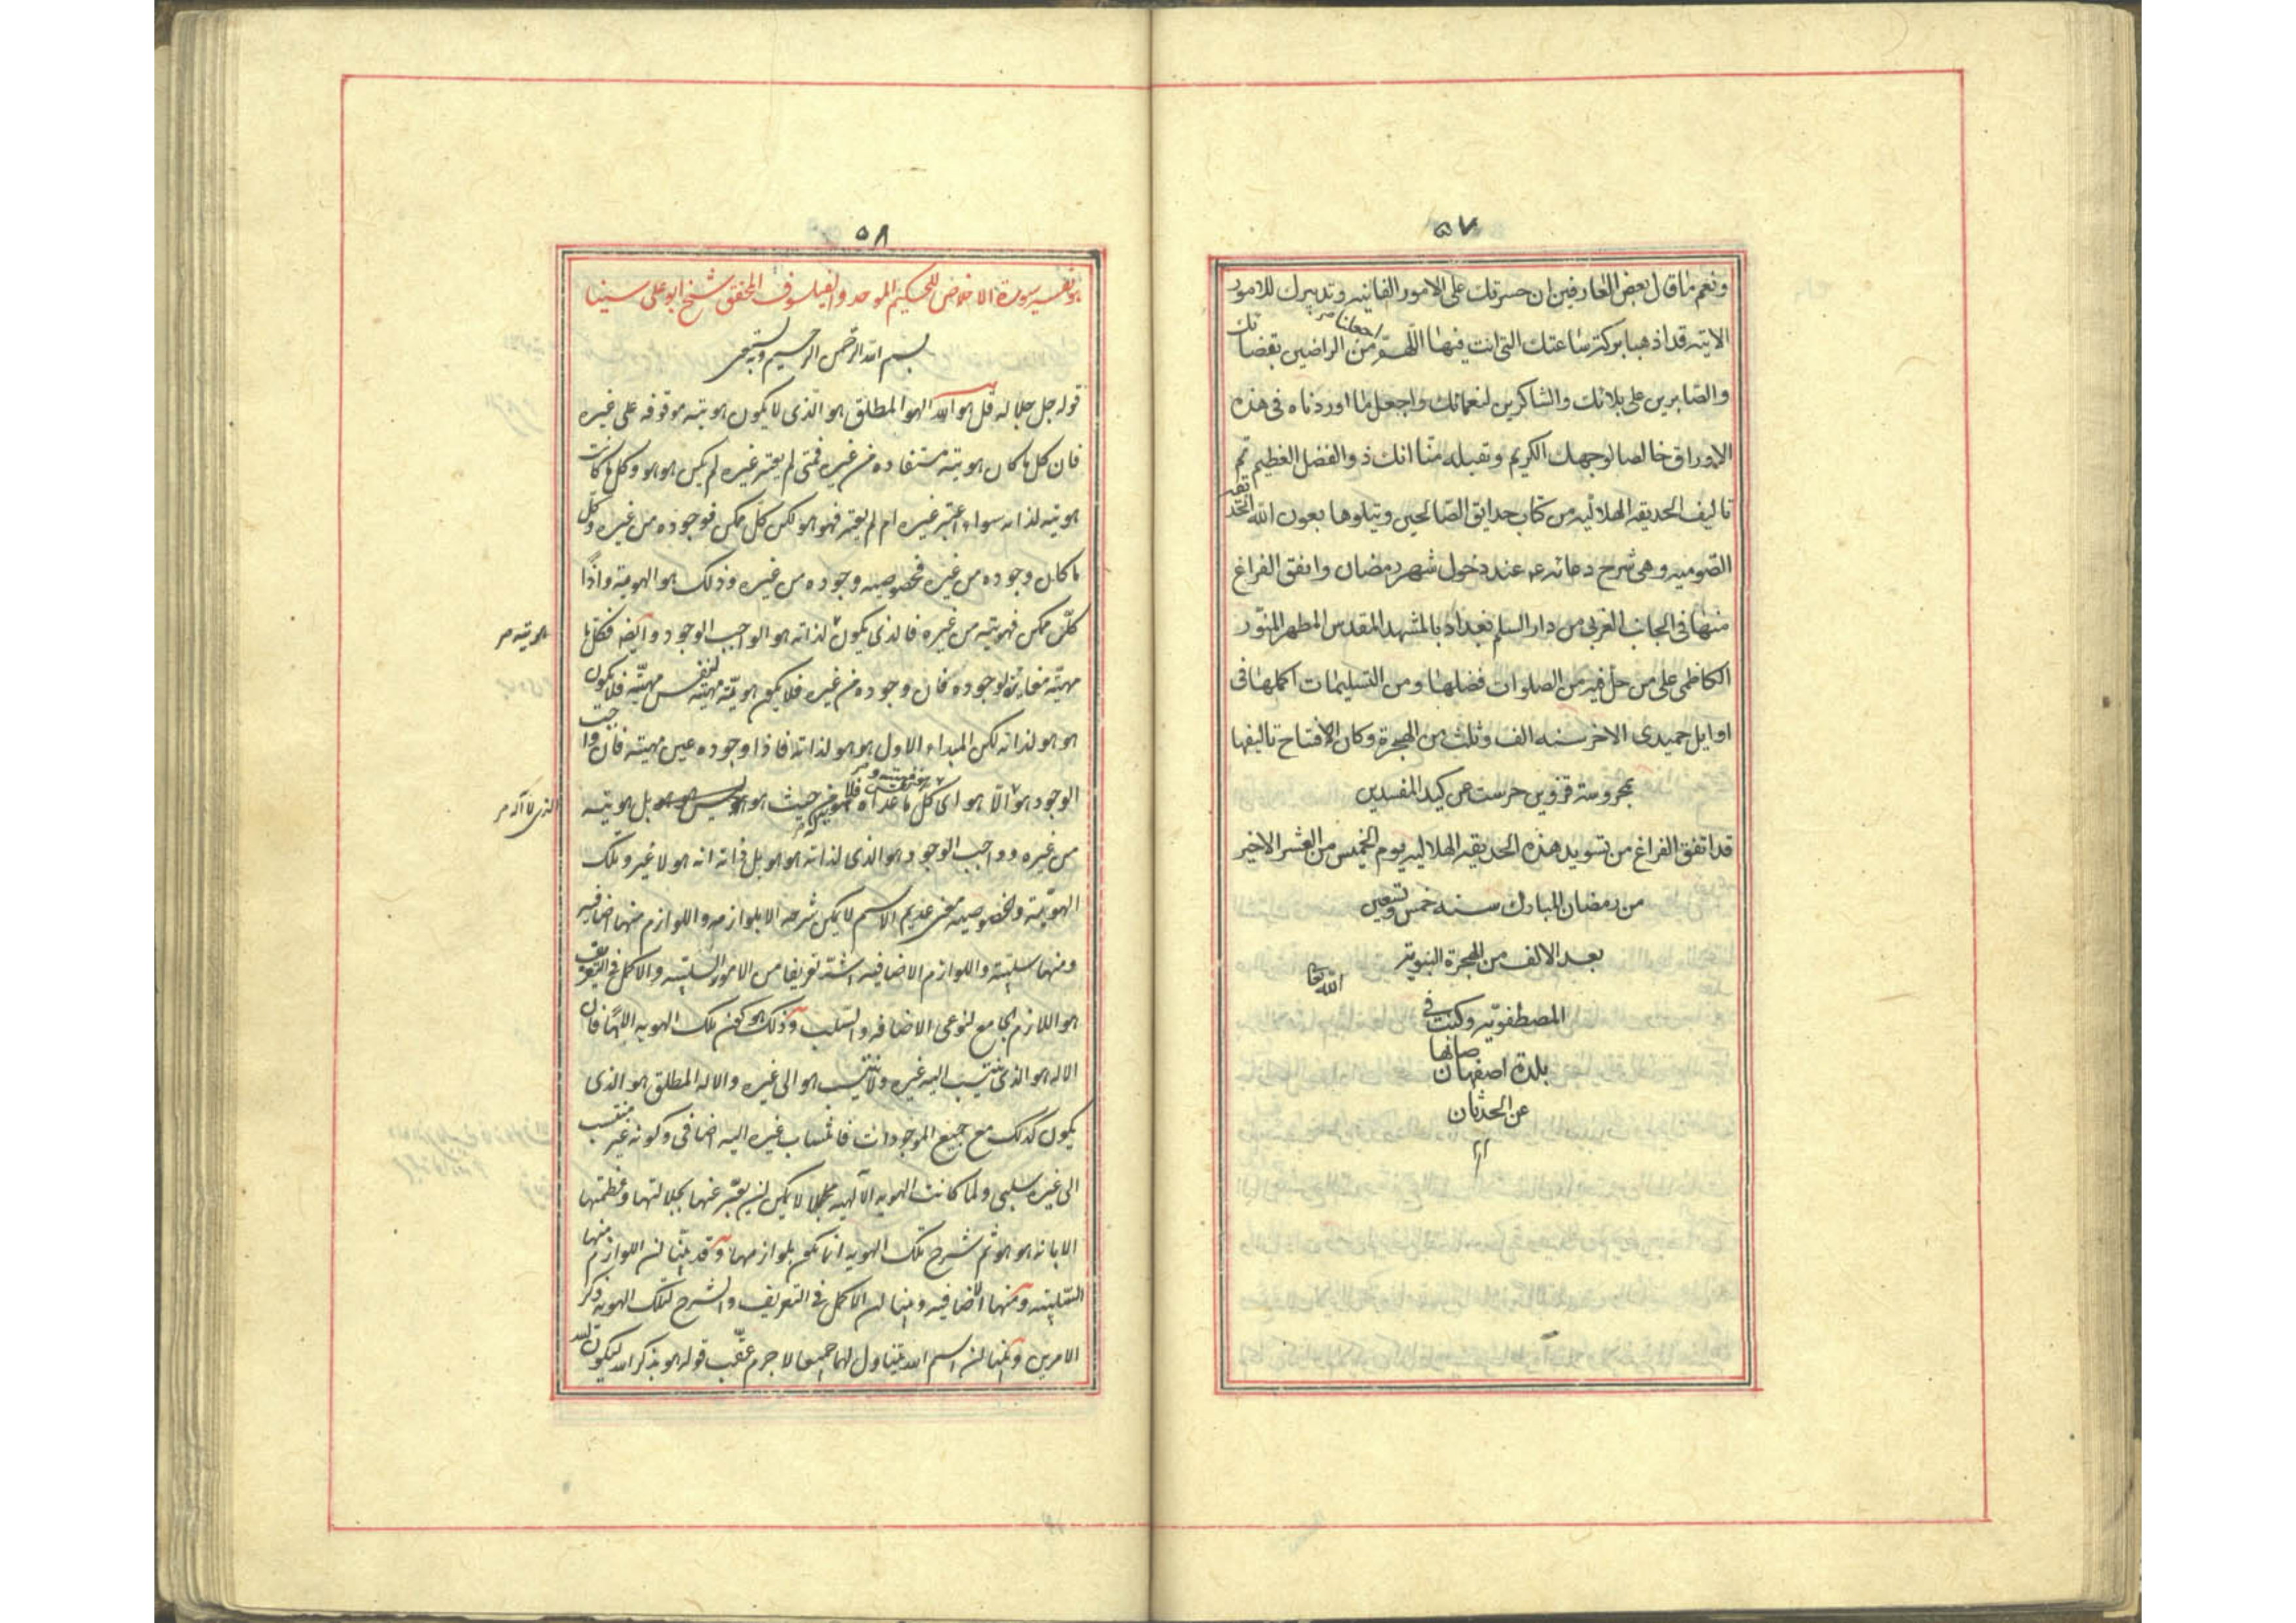 ٥٧
ونعم ما قال بعض العارفين ان حسرتك على الامور الفانيه وتدبيرك للامور
الايته قد اذهبا بركة ساعتك التى انت فيها اللهم اجعلنا من الراضين بقضائك
والصابرين على بلائك والشاكرين لنعمائك واجعل ما اوردناه فى هذه
الاوراق خالصا لوجهك الكريم وتقبله منا انك ذو الفضل العظيم تم
تاليف الحديقه الهلاليه من كتاب حدايق الصالحين ويتلوها بعون الله الحديقه
الصوميه وهى شرح دعائه ع عند دخول شهر رمضان واتفق الفراغ
منها فى الجانب الغربى من دار السلم بغداد بالمشهد المقدس المطهر المنور
الكاظمى على من حل فيه من الصلوات فضلها ومن التسليمات اكملها فى
اوايل جميدى الاخر سنه الف وثلث من الهجرة وكان الافتتاح تاليفها
بمحروسة قزوين حرست عن كيد المفسدين
قد اتفق الفراغ من تسويد هذه الحديقه الهلاليه يوم الخميس من العشر الاخير
من رمضان المبارك سنه خمس وتسعين
بعد الالف من الهجرة النبوية
المصطفويه وكنت فى
بلدة اصفهان صانها الله تعا
عن الحدثان
٥٨
هو تفسير سورة الاخلاص للحكيم الموحد والفيلسوف المحقق شيخ ابو على سينا
بسم الله الرحمن الرحيم وبه نستعين
قوله جل جلاله قل هو الله الهو المطلق هو الذى لا يكون هويته موقوفه على غيره
فان كل ما كان هويته مستفاده من غيره فمتى لم يعتبر غيره لم يكن هو هو وكل ما كانت
هويته لذاته سواء اعتبر غيره ام لم يعتبر فهو هو لكن كل ممكن فوجوده من غيره وكل
ما كان وجوده من غيره فخصوصيه وجوده من غيره وذلك هو الهويه واذا
كل ممكن فهويته من غيره فالذى يكون لذاته هو الواجب الوجود وايضا فكل ما
هويته صر
مهيته مغايرة لوجوده كان وجوده من غيره فلا يكون هويته مهيته لنفس مهيته فلا يكون
هو هو لذاته لكن المبداء الاول هو هو لذاته فاذا وجوده عين مهيته فان واجب
الوجود هو الا هو اى كل ما عداه فلا هو من حيث هو هو ليس هو هو بل هويته
من غيره وواجب الوجود هو الذى لذاته هو هو بل ذاته انه هو لا غير وتلك
الهويه والخصوصيه معنى عديم الاسم لا يمكن شرحه الا بلوازمه واللوازم منها اضافيه
ومنها سلبيه واللوازم الاضافيه اشد تعريفا من الامور السلبيه والاكمل فى التعريف
هو اللازم الجامع لنوعى الاضافه والسلب وذلك هو كون تلك الهويه الها فان
الاله هو الذى ينتسب اليه غيره ولا ينتسب هو الى غيره والاله المطلق هو الذى
يكون كذلك مع جميع الموجودات فانتساب غيره اليه اضافى وكونه غير منتسب
الى غيره سلبى ولما كانت الهويه الالهيه مما لا يمكن ان يعبر عنها بجلالتها وعظمتها
الا بانه هو هو ثم شرح تلك الهويه انما يكون بلوازمها وقد بينا ان اللوازم منها
السلبيه ومنها الاضافيه وبينا ان الاكمل فى التعريف والشرح لتلك الهويه ذكر
الامرين وبينا ان اسم الله يتناول لهما جميعا لا جرم عقب قوله هو بذكر الله ليكون